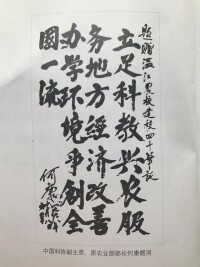 题赠温江農校建校四十
立足科教兴农服
务地方經济改善
办学环境争创全
國一流
何康
中国科协副主席、原农业部部长何康题词